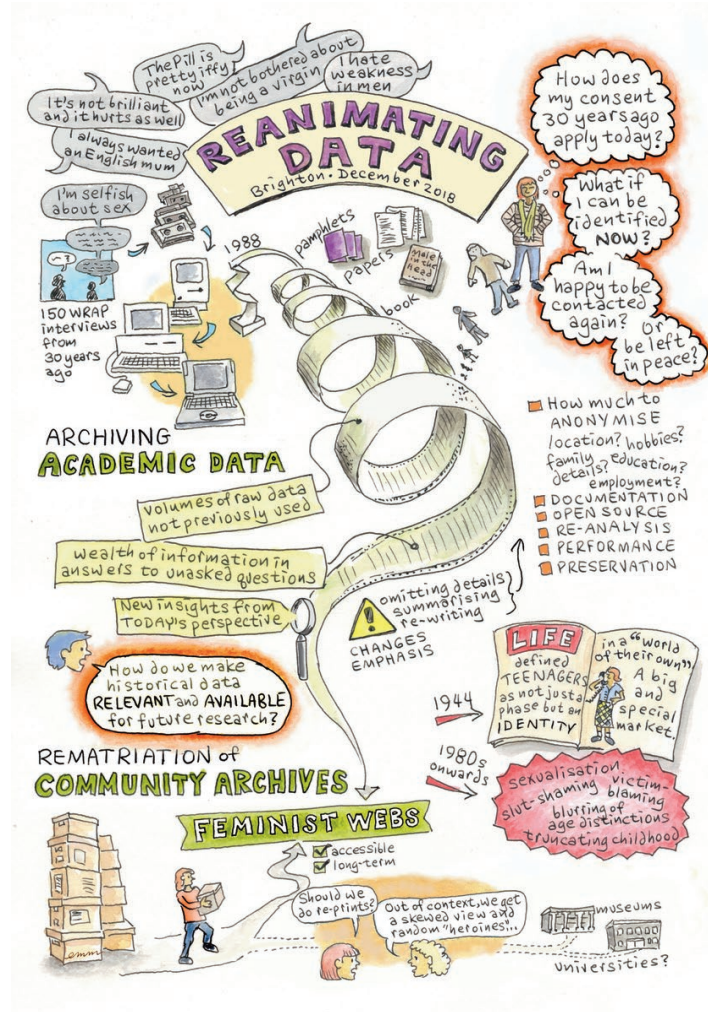 The Pill is
pretty iffy
now
I'm not bothered about
being a virgin
I hate
weakness
in men
It's not brilliant
and it hurts as well
I always wanted
an English mum
I'm selfish
about sex
REANIMATING
DATA
Brighton • December 2018
How does
my consent
30 years ago
apply today?
What if
I can be
identified
NOW?
Am I
happy to be
contacted
again?
Or
be left
in peace?
150 WRAP
interviews
from
30 years
ago
1988
pamphlets
papers
Male
in the
head
book
ARCHIVING
ACADEMIC DATA
volumes of raw data
not previously used
wealth of information in
answers to unasked questions
New insights from
TODAY's perspective
omitting details
summarising
re-writing
CHANGES
EMPHASIS
How much to
ANONYMISE
location? hobbies?
family details? education?
employment?
DOCUMENTATION
OPEN SOURCE
RE-ANALYSIS
PERFORMANCE
PRESERVATION
How do we make
historical data
RELEVANT and AVAILABLE
for future research?
1944
LIFE
defined
TEENAGERS
as not just a
phase but an
IDENTITY
in a "world
of their own"
A big
and
special
market.
1980s
onwards
sexualisation
slut-shaming victim-blaming
blurring of
age distinctions
truncating childhood
REMATRIATION of
COMMUNITY ARCHIVES
FEMINIST WEBS
accessible
long-term
Should we
do re-prints?
Out of context, we get
a skewed view and
random "heroines"...
museums
universities?